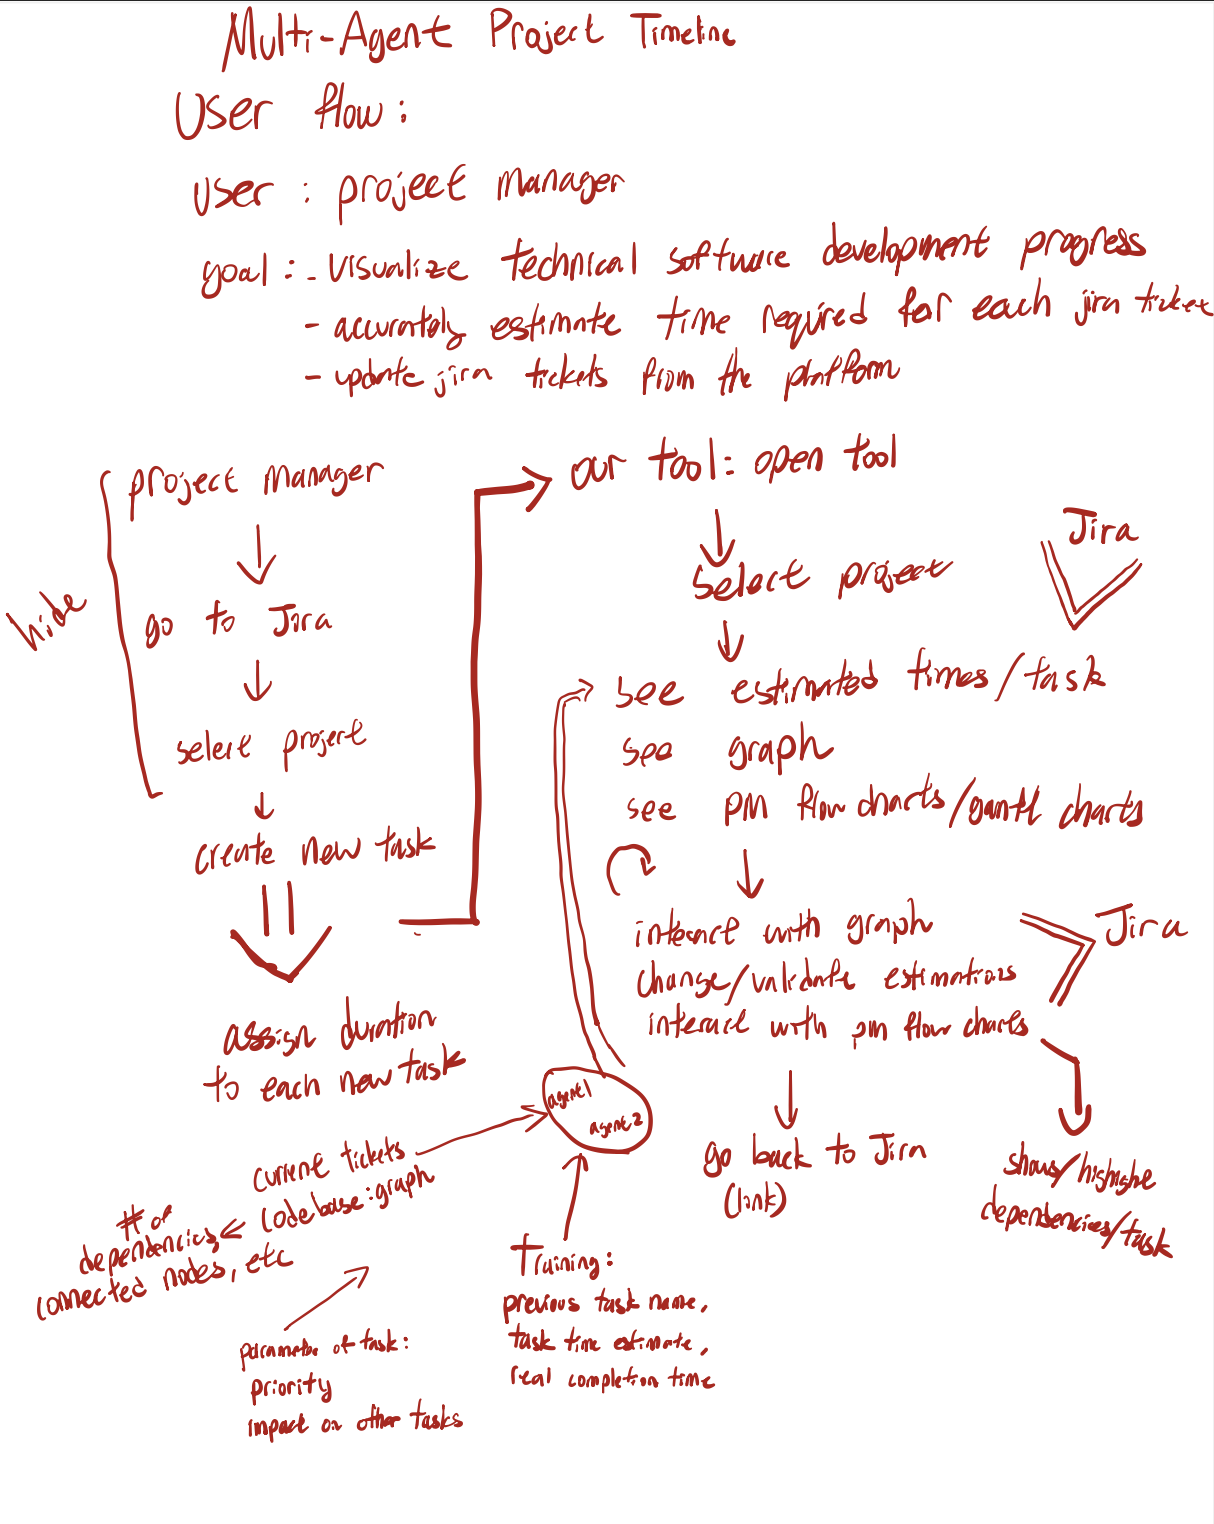 Multi-Agent Project Timeline
User flow:
user: project manager
goal: - visualize technical software development progress
- accurately estimate time required for each jira ticket
- update jira tickets from the platform
hide
project manager
go to Jira
select project
create new task
assign duration
to each new task
our tool: open tool
select project
Jira
see estimated times/task
see graph
see PM flow charts/gantt charts
interact with graph
change/validate estimations
interact with pm flow charts
Jira
go back to Jira
(link)
shows/highlight
dependencies/task
agent1
agent2
current tickets
codebase: graph
# of
dependencies,
connected nodes, etc
parameter of task:
priority
impact on other tasks
Training:
previous task name,
task time estimate,
real completion time